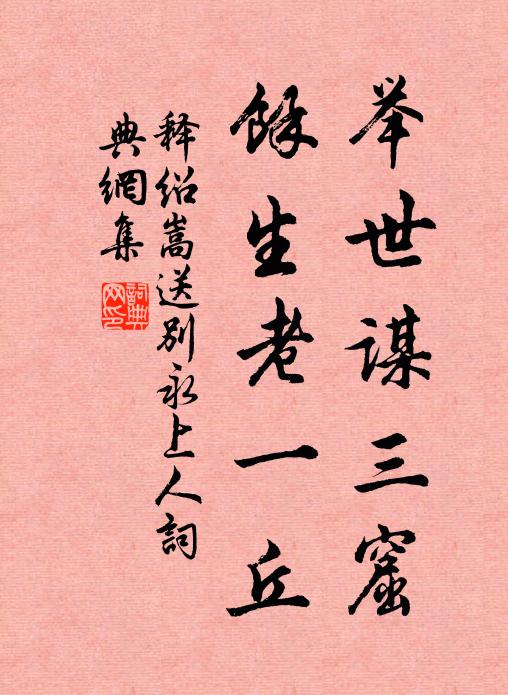 举世谋三窟
馀生老一丘
释绍嵩送别永上人词
典网集
词典网印